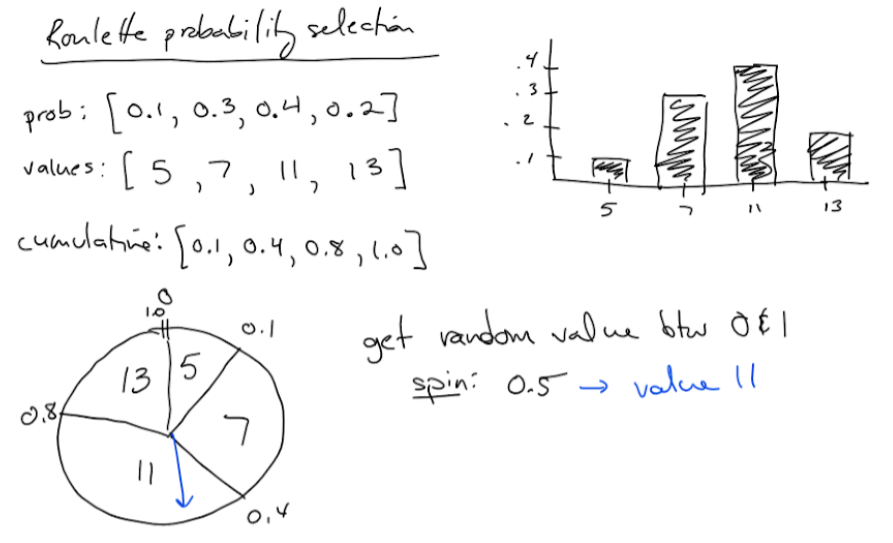 Roulette probability selection
prob: [0.1, 0.3, 0.4, 0.2]
values: [5, 7, 11, 13]
cumulative: [0.1, 0.4, 0.8, 1.0]
.4
.3
.2
.1
5 7 11 13
0
1.0
0.1
13 5
0.8
7
11
0.4
get random value btw 0 & 1
spin: 0.5 → value 11